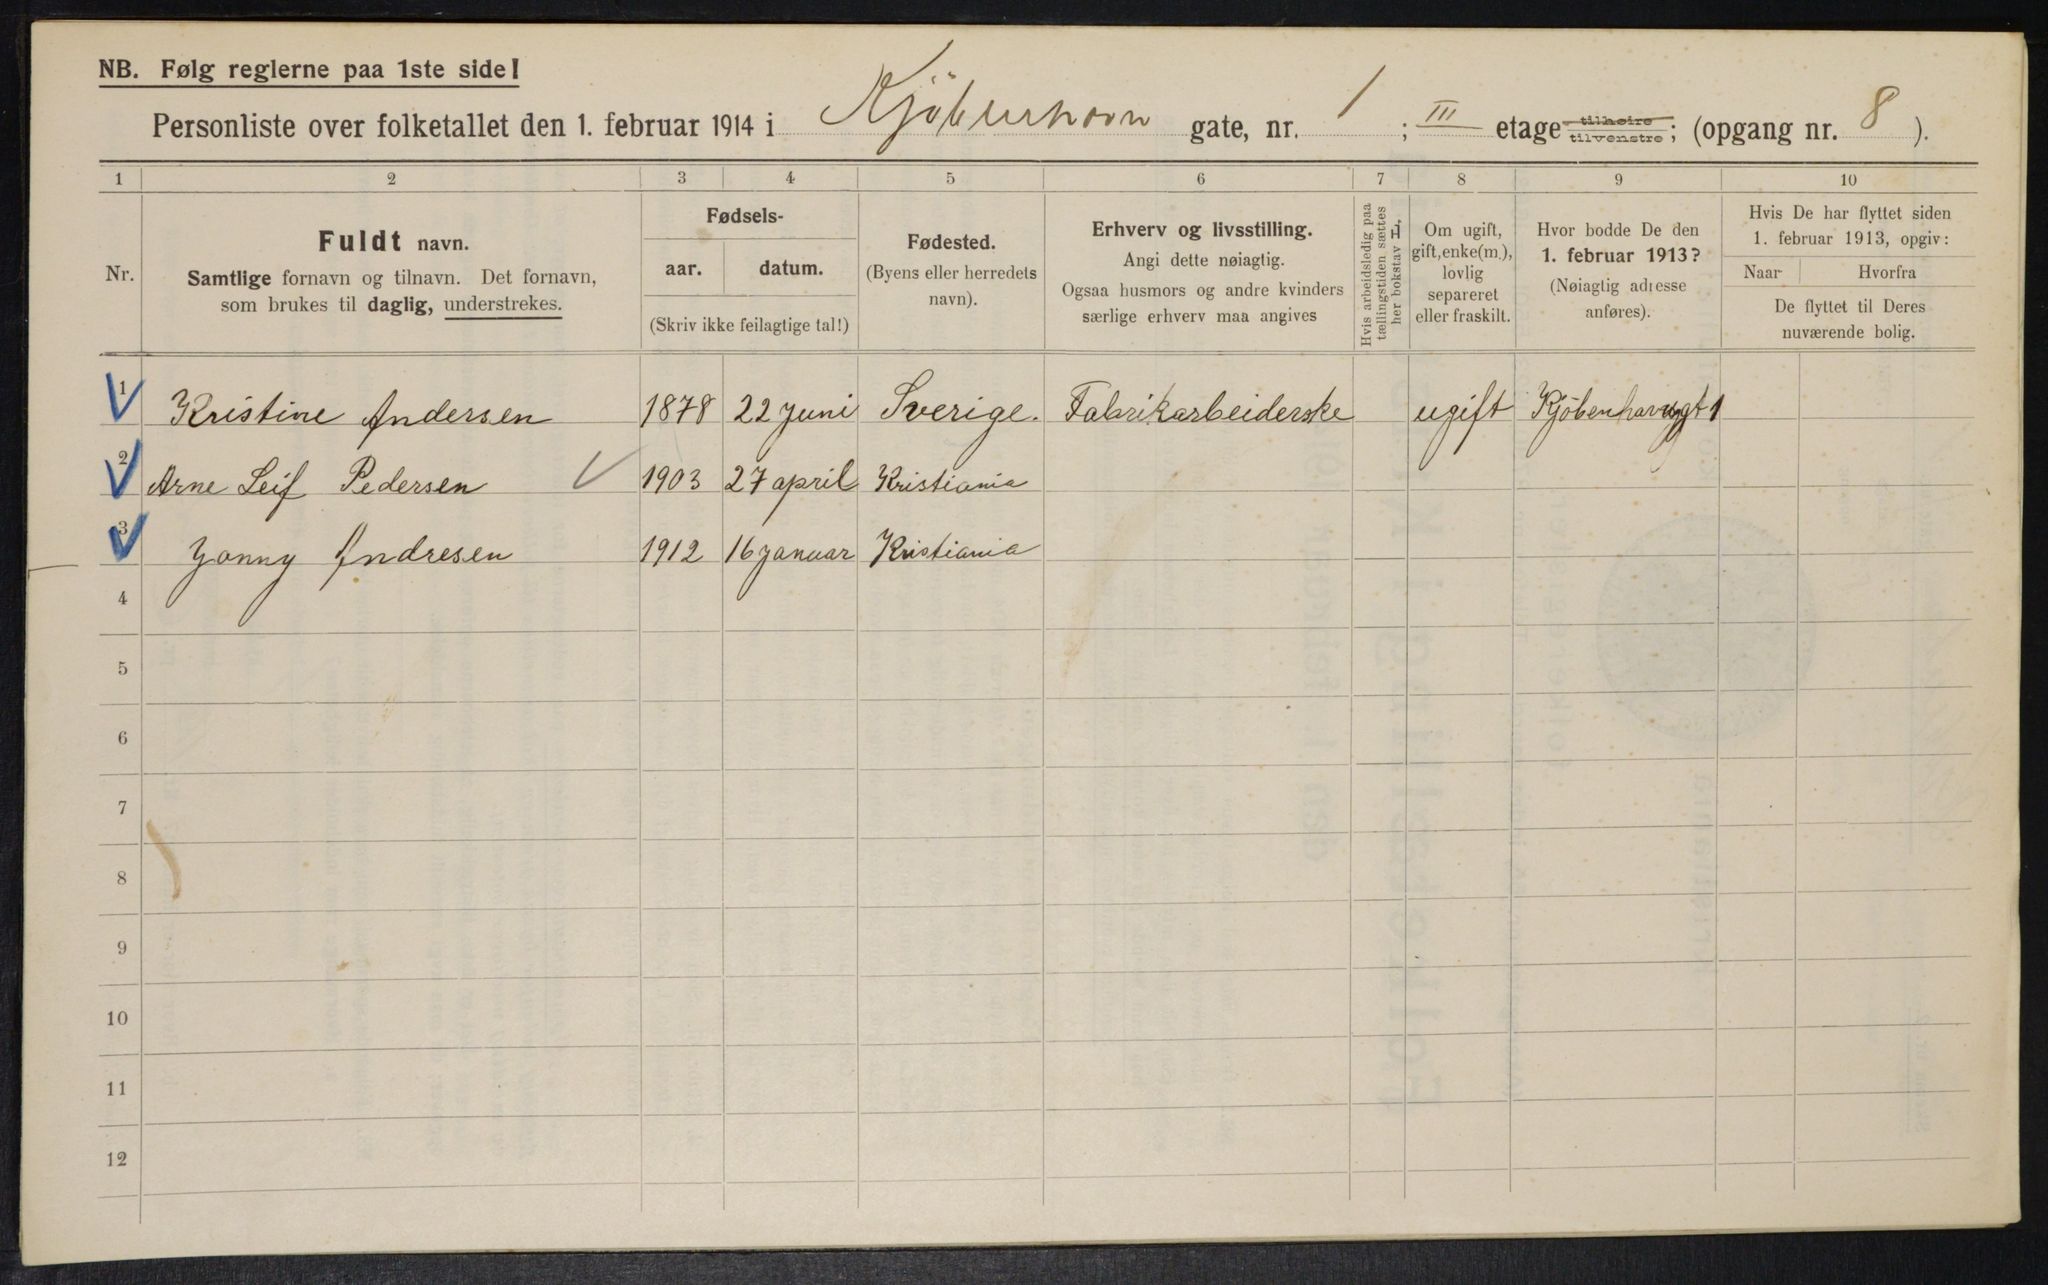 NB. Følg reglerne paa 1ste side!
Personliste over folketallet den 1. februar 1914 i Kjöbenhavn gate, nr. 1 ; III etage tilhøire tilvenstre; (opgang nr. 8 ).
1 2 3 4 5 6 7 8 9 10
Nr.
Fuldt navn.
Samtlige fornavn og tilnavn. Det fornavn,
som brukes til daglig, understrekes.
Fødsels-
aar. datum.
(Skriv ikke feilagtige tal!)
Fødested.
(Byens eller herredets
navn).
Erhverv og livsstilling.
Angi dette nøiagtig.
Ogsaa husmors og andre kvinders
særlige erhverv maa angives
Hvis arbeidsledig paa
tællingstiden sættes
her bokstav L.
Om ugift,
gift, enke(m.),
lovlig
separeret
eller fraskilt.
Hvor bodde De den
1. februar 1913?
(Nøiagtig adresse
anføres).
Hvis De har flyttet siden
1. februar 1913, opgiv:
Naar Hvorfra
De flyttet til Deres
nuværende bolig.
1 Kristine Andersen 1878 22 juni Sverige. Fabrikarbeiderske ugift Kjöbenhavngt 1
2 Arne Leif Pedersen 1903 27 april Kristiania
3 Jonny Andresen 1912 16 januar Kristiania
4
5
6
7
8
9
10
11
12